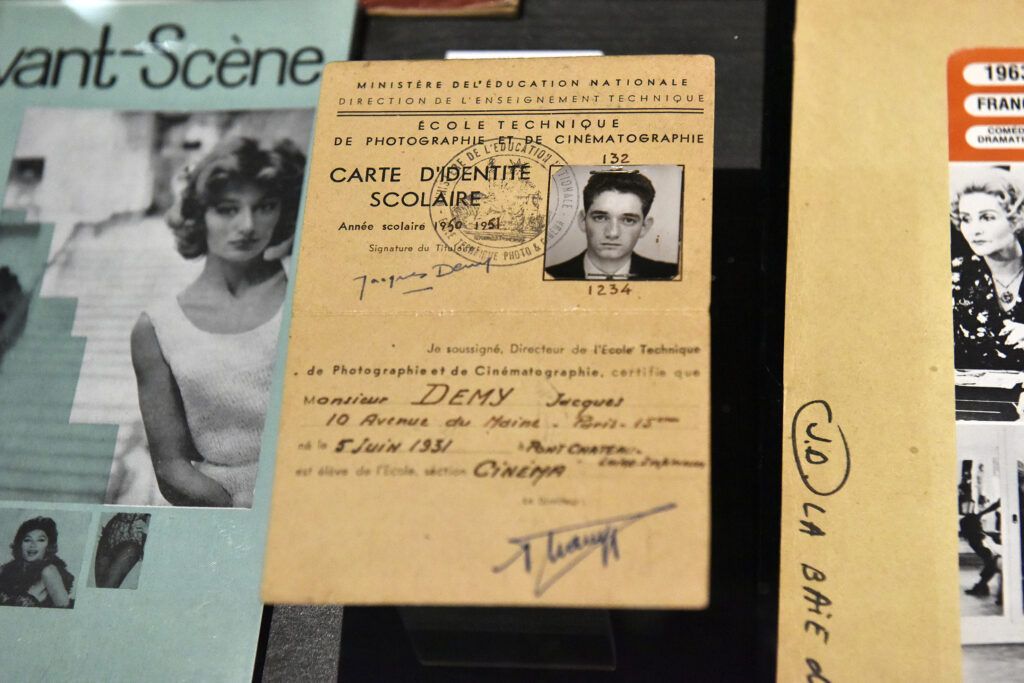 vant-Scène
MINISTÈRE DE L'ÉDUCATION NATIONALE
DIRECTION DE L'ENSEIGNEMENT TECHNIQUE
ÉCOLE TECHNIQUE
DE PHOTOGRAPHIE ET DE CINÉMATOGRAPHIE
CARTE D'IDENTITÉ
SCOLAIRE
Année scolaire 1950 1951
Signature du Titulaire
Jacques Demy
132
1234
Je soussigné, Directeur de l'Ecole Technique
de Photographie et de Cinématographie, certifie que
Monsieur DEMY Jacques
10 Avenue du Maine - Paris - 15ème
né le 5 Juin 1931 à PONTCHATEAU
est élève de l'Ecole, section CINEMA
1963
FRAN
COMÉD
DRAMAT
J.D. LA BAIE d